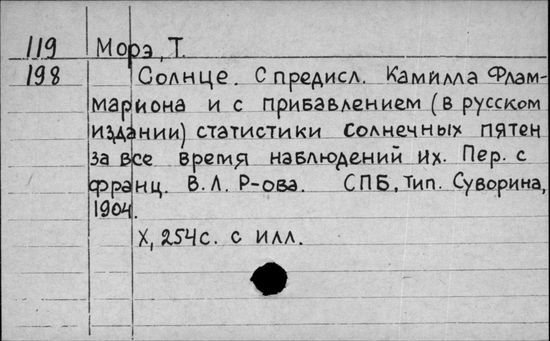 119 Морэ, Т.
198 Солнце. С предисл. Камилла Флам-
мариона и с прибавлением (в русском
издании) статистики солнечных пятен
за все время наблюдений их. Пер. с
франц. В.Л. Р-ова. СПБ, Тип. Суворина,
1904.
X, 254с. с илл.